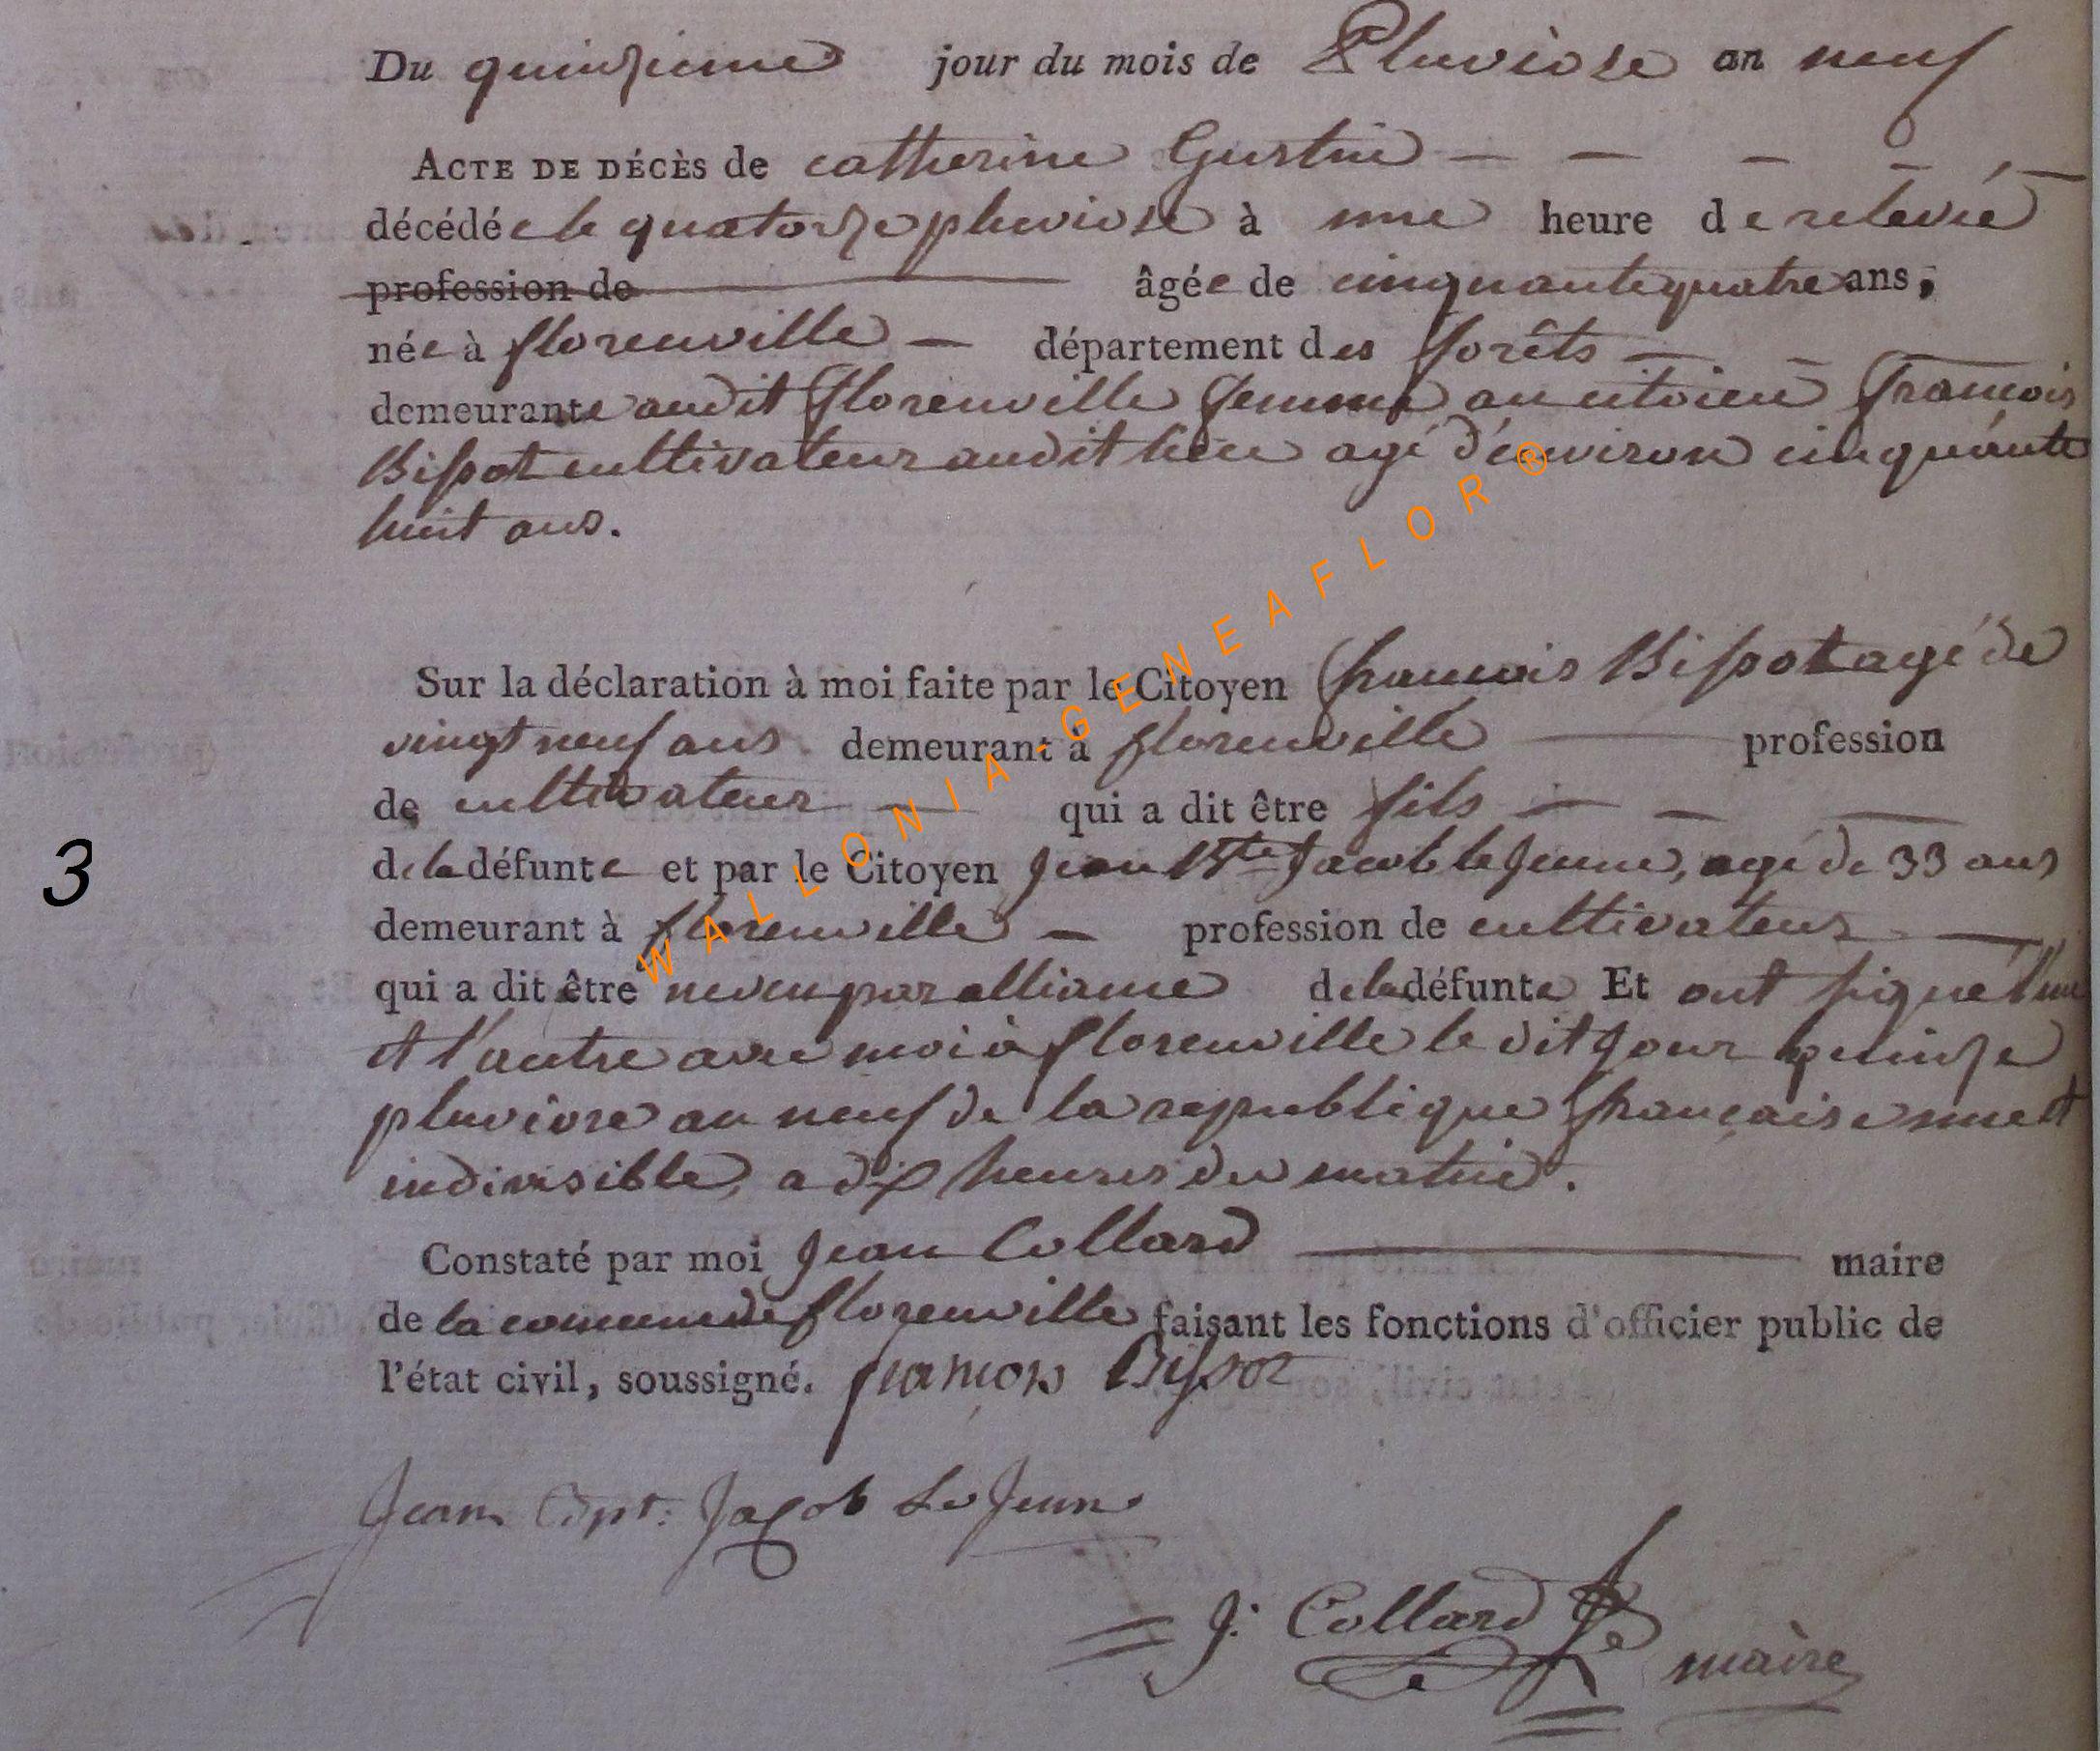 Du quinzieme jour du mois de Pluviose an neuf
ACTE DE DÉCÈS de catherine Gustin
décédée le quatorze pluviose à une heure de relevée
profession de âgée de cinquante quatre ans,
née à florenville département des forêts
demeurante audit florenville femme au citoien francois
Bissot cultivateur audit lieu agé d'environ cinquante
huit ans.
Sur la déclaration à moi faite par le Citoyen francois Bissot agé de
vingt neuf ans demeurant à florenville profession
de cultivateur qui a dit être fils
de la défunte et par le Citoyen Jean Bte Jacob le Jeune, agé de 33 ans
3
demeurant à florenville profession de cultivateur
qui a dit être neveu par alliance de la défunte Et ont signé l'un
et l'autre avec moi à florenville le dit jour quinze
pluviose an neuf de la republique française une et
indivisible, a dix heures du matin.
Constaté par moi Jean Collard maire
de la commune de florenville faisant les fonctions d'officier public de
l'état civil, soussigné. françois Bissot
Jean Bpt. Jacob Le Jeune
J: Collard maire
WALLONIA-GENEAFLOR®